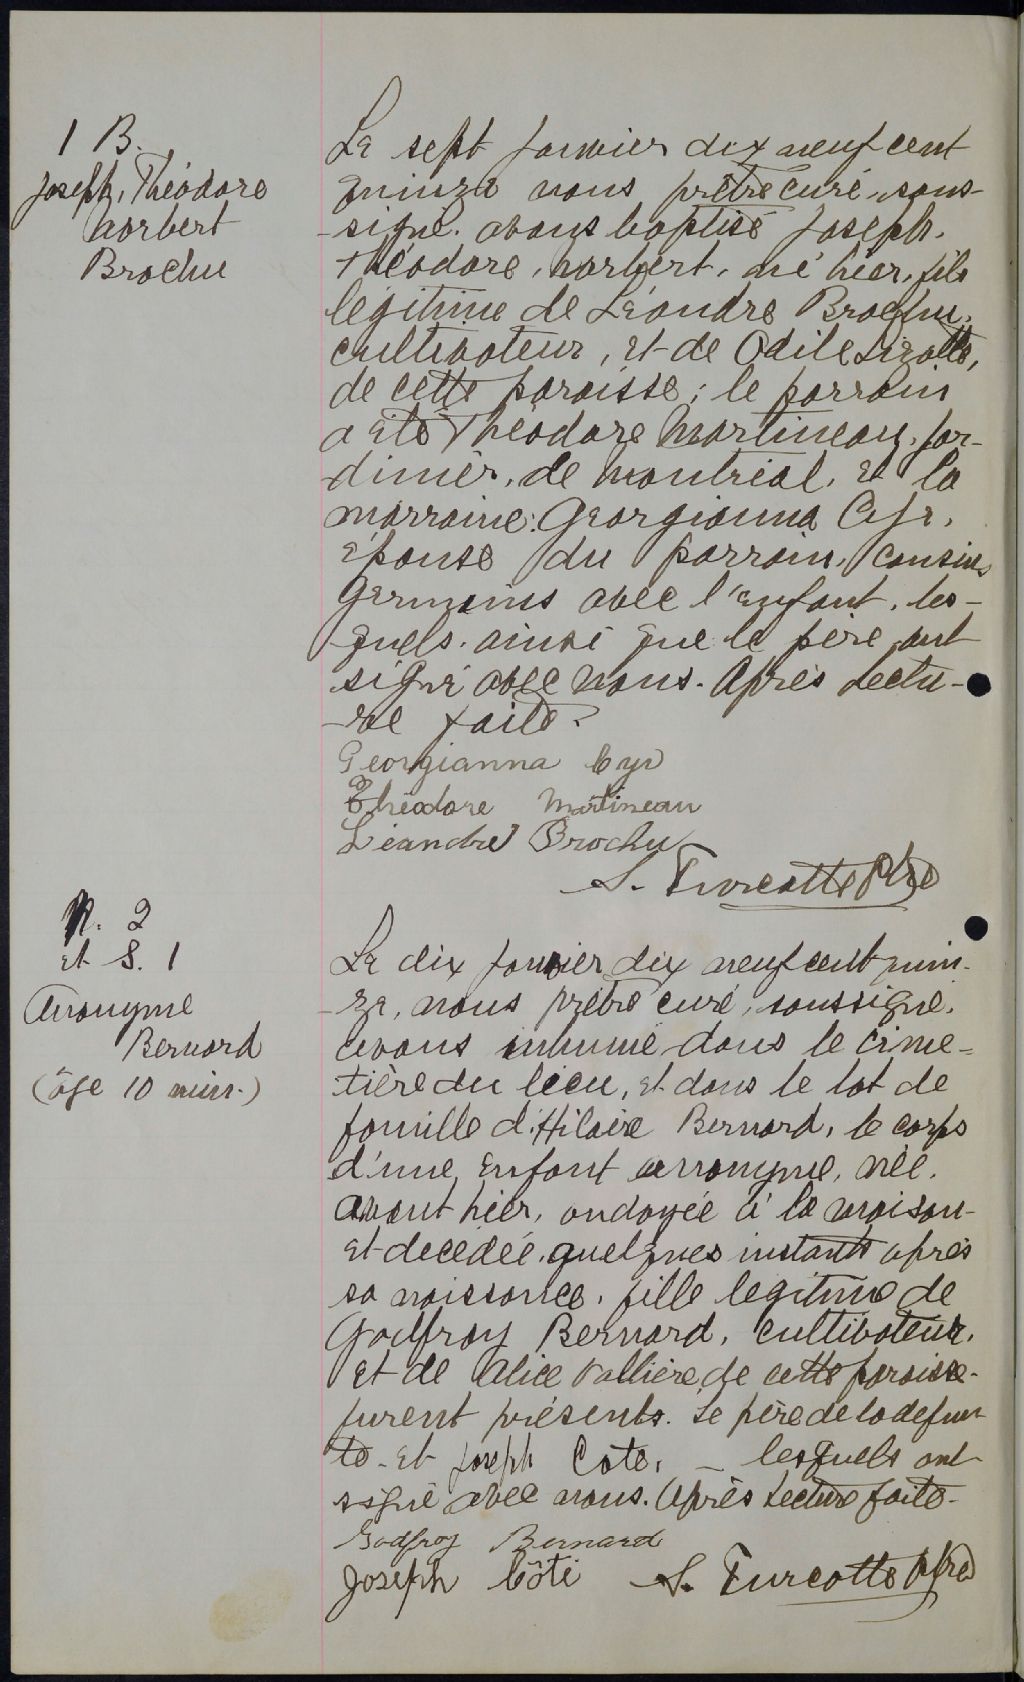 1 B.
Joseph, Théodore
Norbert
Brochu
Le sept janvier dix neuf cent
quinze nous prêtre curé, sous-
-signé. avons baptisé Joseph.
Théodore, Norbert, né hier, fils
légitime de Léandre Brochu,
cultivateur, et de Odile Lizotte,
de cette paroisse; le parrain
a été Théodore Martineau, jar-
dinier, de Montréal, et la
marraine: Georgianna Cyr,
épouse du parrain, cousins
germains avec l'enfant, les-
quels. ainsi que le père ont
signé avec nous. Après lectu-
-re faite.
Georgianna Cyr
Théodore Martineau
Léandre Brochu
S. Turcotte Ptre
N. 2
et S. 1
Anonyme
Bernard
(âge 10 min.)
Le dix janvier dix neuf cent quin-
-ze, nous prêtre curé, soussigné,
avons inhumé dans le cime-
-tière du lieu, et dans le lot de
famille d'Hilaire Bernard, le corps
d'une enfant anonyme, née,
avant hier, ondoyée à la maison
et decedée, quelques instants après
sa naissance, fille legitime de
Godfroy Bernard, cultivateur,
et de Alice Vallière de cette paroisse-
furent présents. Le père de la defun
te- et Joseph Cote, - lesquels ont
signé avec nous. Après lecture faite-
Godfroy Bernard
Joseph Côté S. Turcotte Ptre